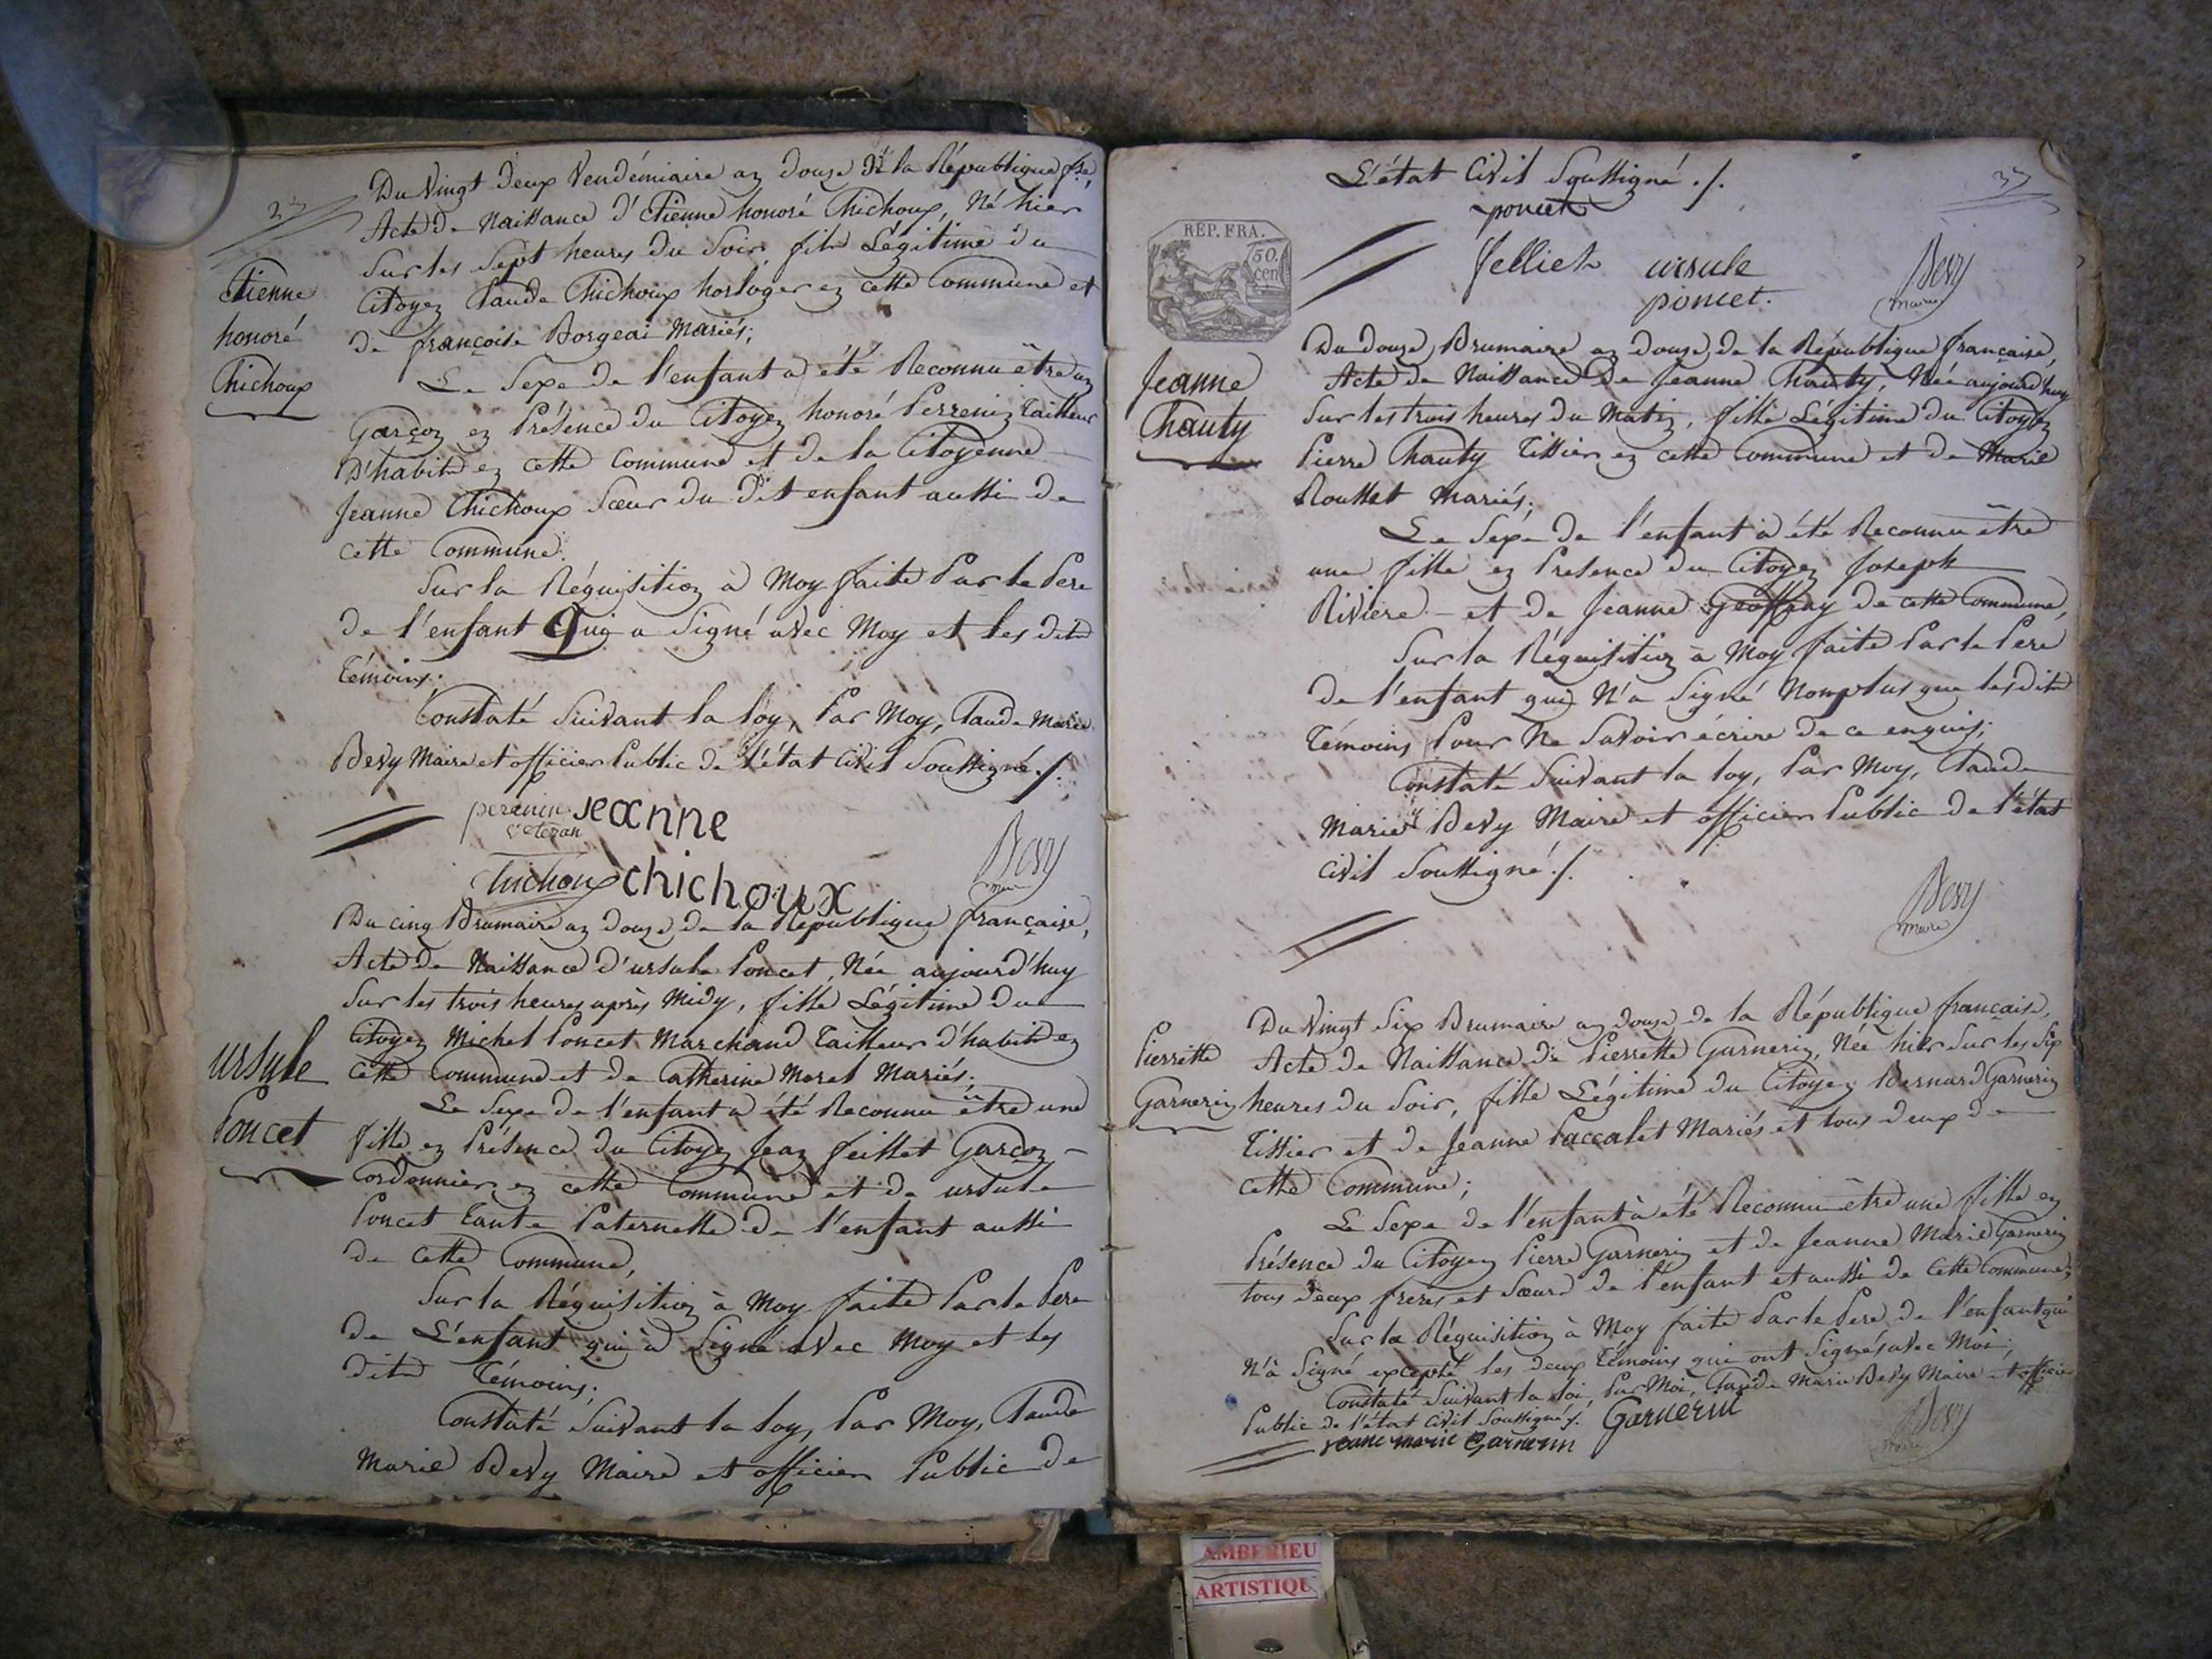 Du Vingt Deux Vendémiaire an Douze de la République fse,
Acte de Naissance d'Etienne honoré Chichoux, Né hier
Sur les Sept heures du Soir, fils Légitime du
Citoyen Claude Chichoux horloger en cette Commune et
de françoise Borgeai Mariés;
Etienne
honoré
Chichoux
Le Sexe de l'enfant a été Reconnu être un
Garçon en Présence du Citoyen honoré Perrenin Tailleur
D'habits en cette Commune et de la Citoyenne
Jeanne Chichoux Sœur du Dit enfant aussi de
cette Commune.
Sur la Réquisition à Moy faite Par le Pere
de l'enfant Qui a Signé avec Moy et les dits
Témoins.
Constaté Suivant la Loy, Par Moy, Claude Marie
Bevy Maire et officier Public de l'état Civil Soussigné ./.
perenin Jeanne
Chichoux chichoux
Bevy
Maire
Du cinq Brumaire an douze de la République française,
Acte de Naissance d'ursule Poncet, Née aujourd'huy
Sur les trois heures après Midy, fille Légitime du
Citoyen Michel Poncet Marchand Tailleur d'habits en
cette Commune et de Catherine Morel Mariés;
ursule
Poncet
Le Sexe de l'enfant a été Reconnu être une
fille en Présence du Citoyen Jean feillet Garçon
Cordonnier en cette Commune et de ursule
Poncet Tante Paternelle de l'enfant aussi
de cette Commune,
Sur la Réquisition à Moy faite Par le Pere
de L'enfant qui à Signé avec Moy et les
dits Témoins;
Constaté Suivant la Loy, Par Moy, Claude
Marie Bevy Maire et officier Public de
L'état Civil Soussigné ./.
poncet
felliet ursule
poncet.
Bevy
Maire
RÉP. FRA.
50.
cen
Du douze Brumaire an douze de la République française,
Acte de Naissance de Jeanne Chauty, Née aujourd'huy
Sur les trois heures du Matin, fille Légitime du Citoyen
Pierre Chauty Tissier en cette Commune et de Marie
Rousset Mariés;
Jeanne
Chauty
Le Sexe de l'enfant à été Reconnu être
une fille en Presence du Citoyen Joseph
Riviere et de Jeanne Geoffray de cette Commune,
Sur la Réquisition à Moy faite Par le Pere
de l'enfant qui N'a Signé Nonplus que les dits
Témoins Pour Ne Savoir écrire de ce enquis;
Constaté Suivant la loy, Par Moy, Claude
Marie Bevy Maire et officier Public de l'état
Civil Soussigné ./.
Bevy
Maire
Du Vingt Six Brumaire an douze de la République française,
Acte de Naissance de Pierrette Garnerin, Née hier Sur les Six
heures du Soir, fille Légitime du Citoyen Bernard Garnerin
Tissier et de Jeanne Paccalet Mariés et tous deux de
cette Commune;
Pierrette
Garnerin
Le Sexe de l'enfant à été Reconnu être une fille en
Présence du Citoyen Pierre Garnerin et de Jeanne Marie Garnerin
tous deux freres et Sœurs de l'enfant et aussi de Cette Commune;
Sur la Réquisition à Moy faite Par le Pere de l'enfant qui
N'à Signé excepté les deux Témoins qui ont Signés avec Moi;
Constaté Suivant la Loi, Par Moi, Claude Marie Bevy Maire et officier
Public de l'état Civil Soussigné ./. Garnerin
jeane marie Garnerin
Bevy
Maire
AMBERIEU
ARTISTIQUE